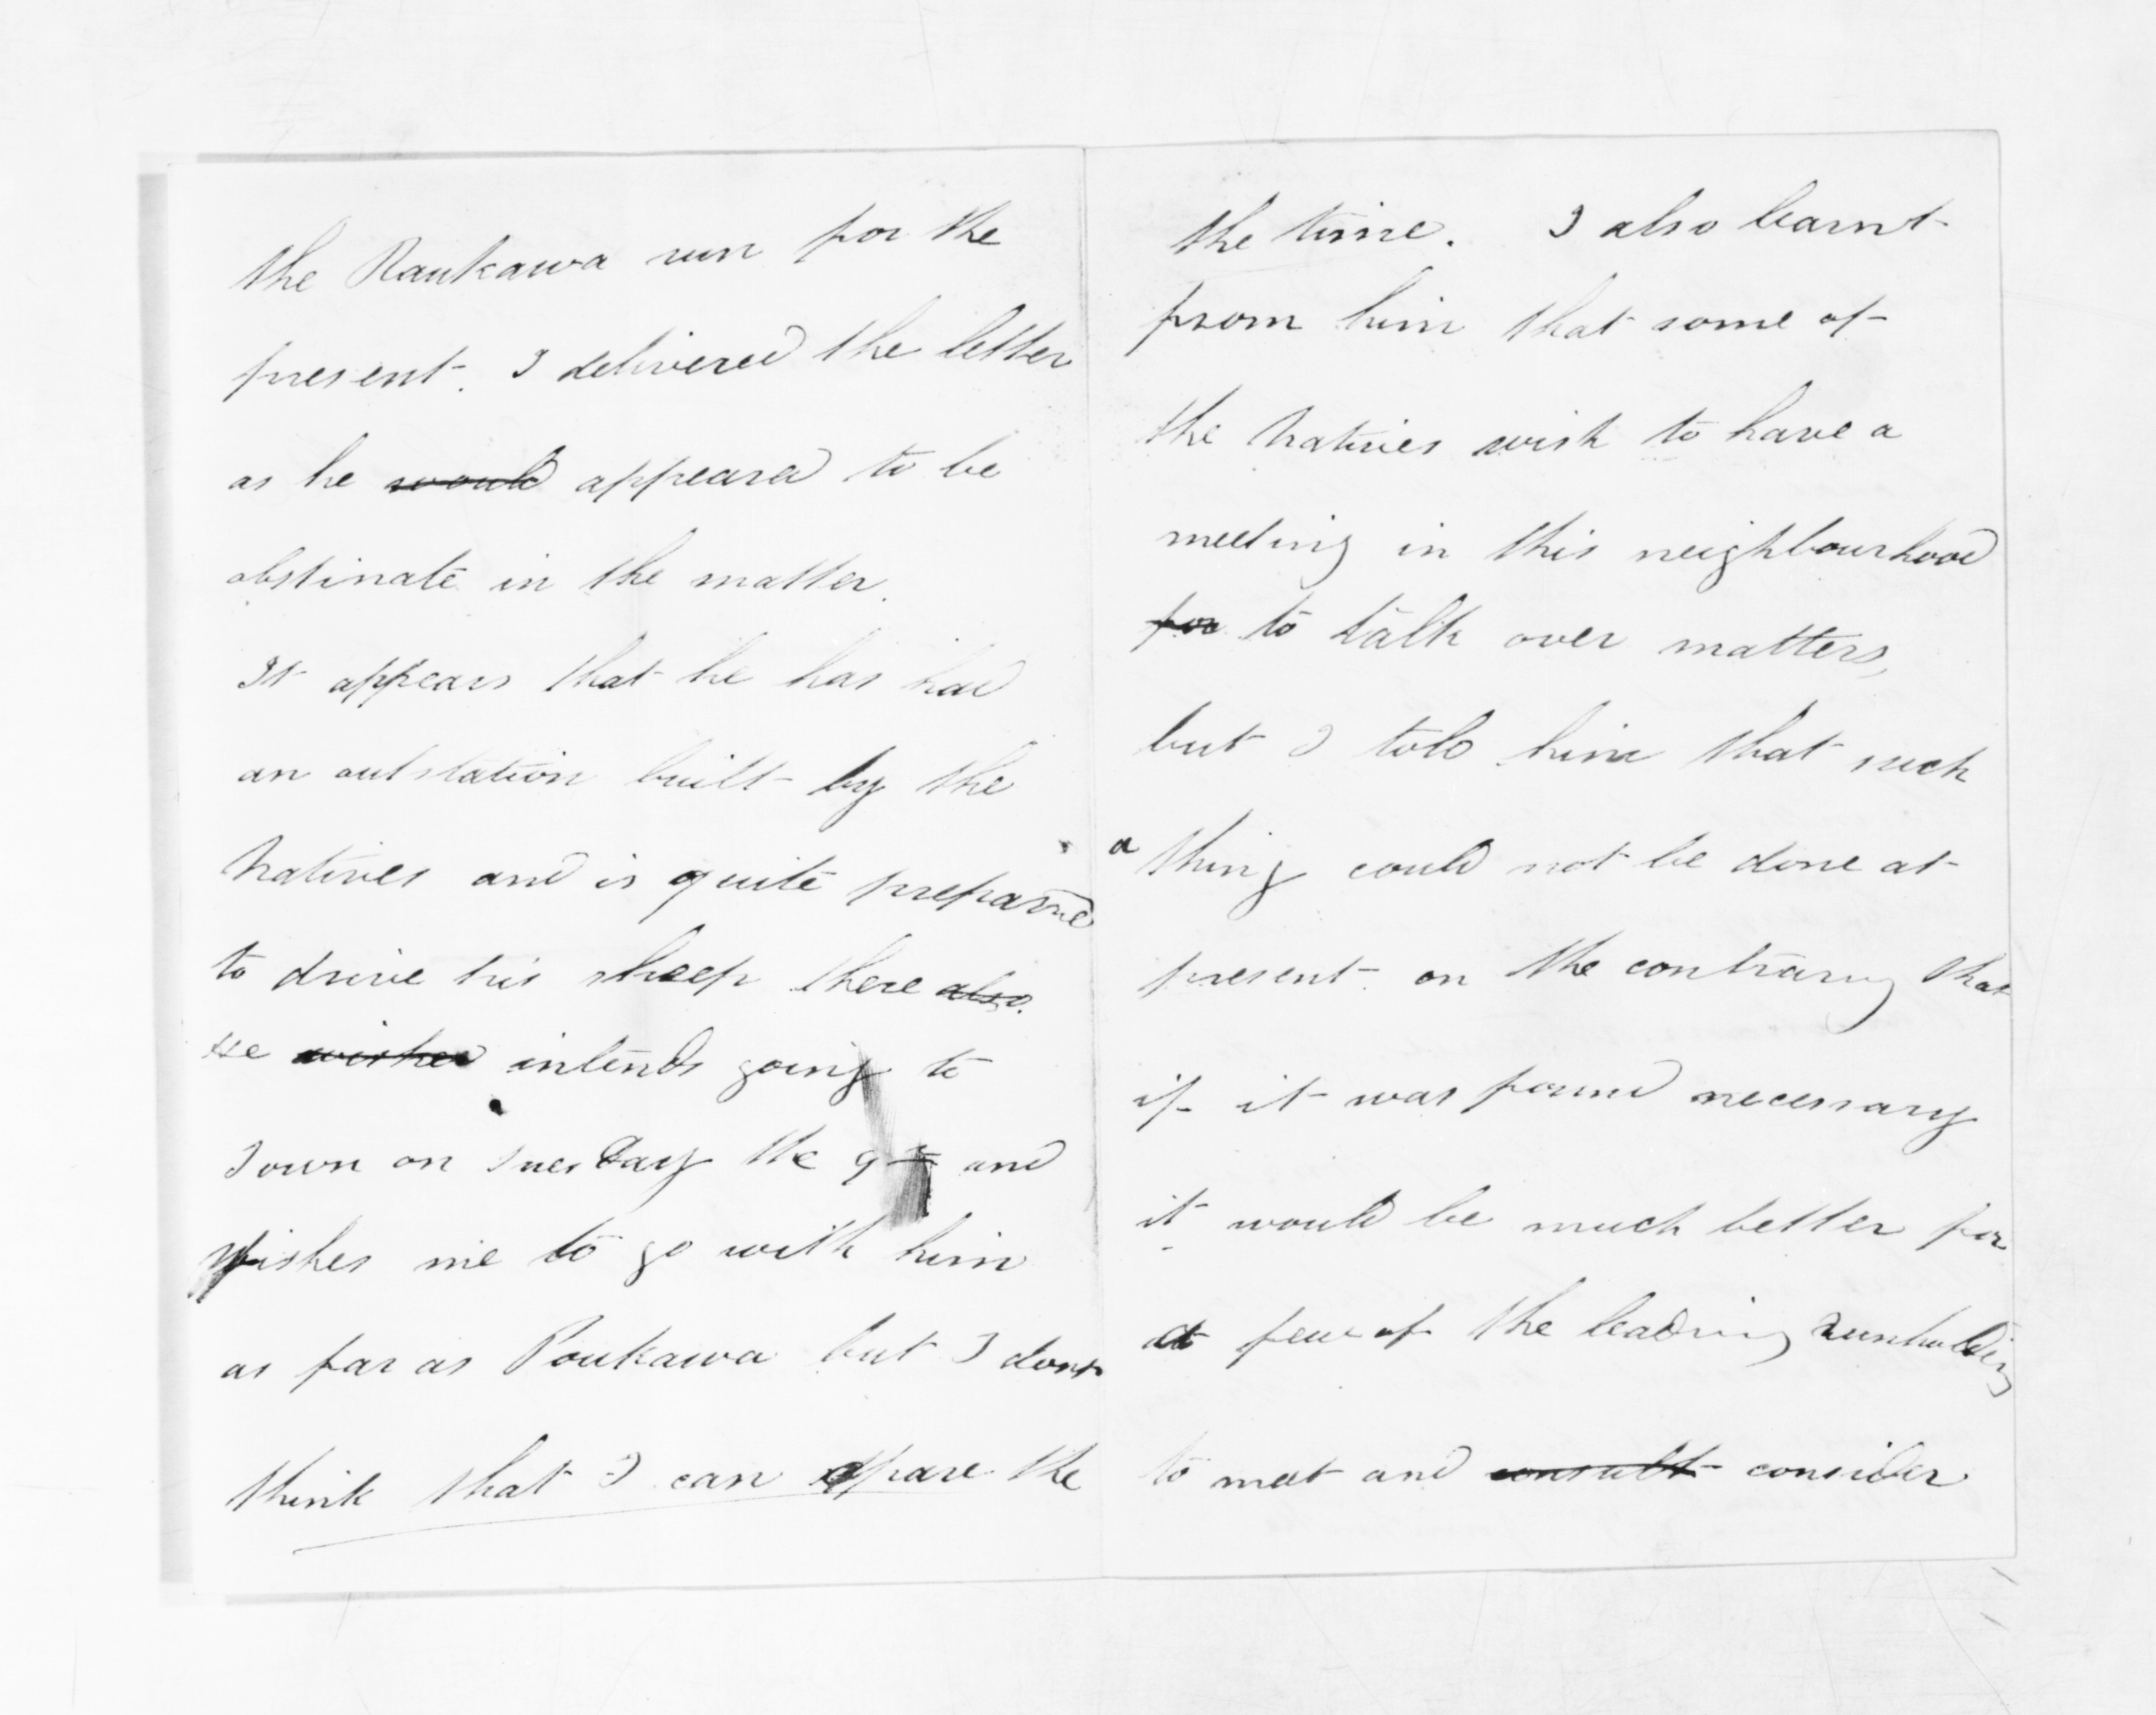 the Raukawa run for the
present. I delivered the letter
as he would appeared to be
obstinate in the matter.
It appears that he has had
an outstation built by the
Natives and is quite prepared
to drive his sheep there also.
He wishes intends going to
Town on Tuesday the 9th and
wishes me to go with him
as far as Poukawa but I dont
think that I can spare the
the time. I also learnt
from him that some of
the Natives wish to have a
meeting in this neighbourhood
for to talk over matters,
but I told him that such
a thing could not be done at
present on the contrary that
if it was found necessary
it would be much better for
a few of the leading runholders
to meet and consult consider